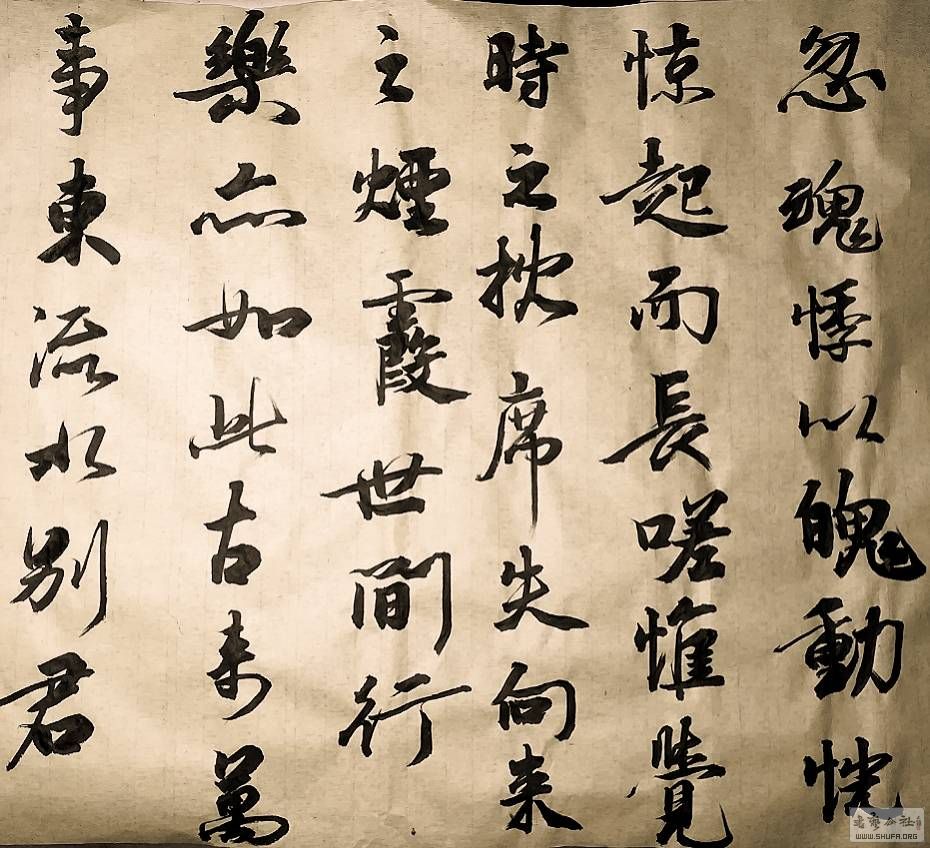 忽魂悸以魄動恍
惊起而長嗟惟覺
時之枕席失向来
之煙霞世間行
樂亦如此古来萬
事東流水别君
WWW.SHUFA.ORG